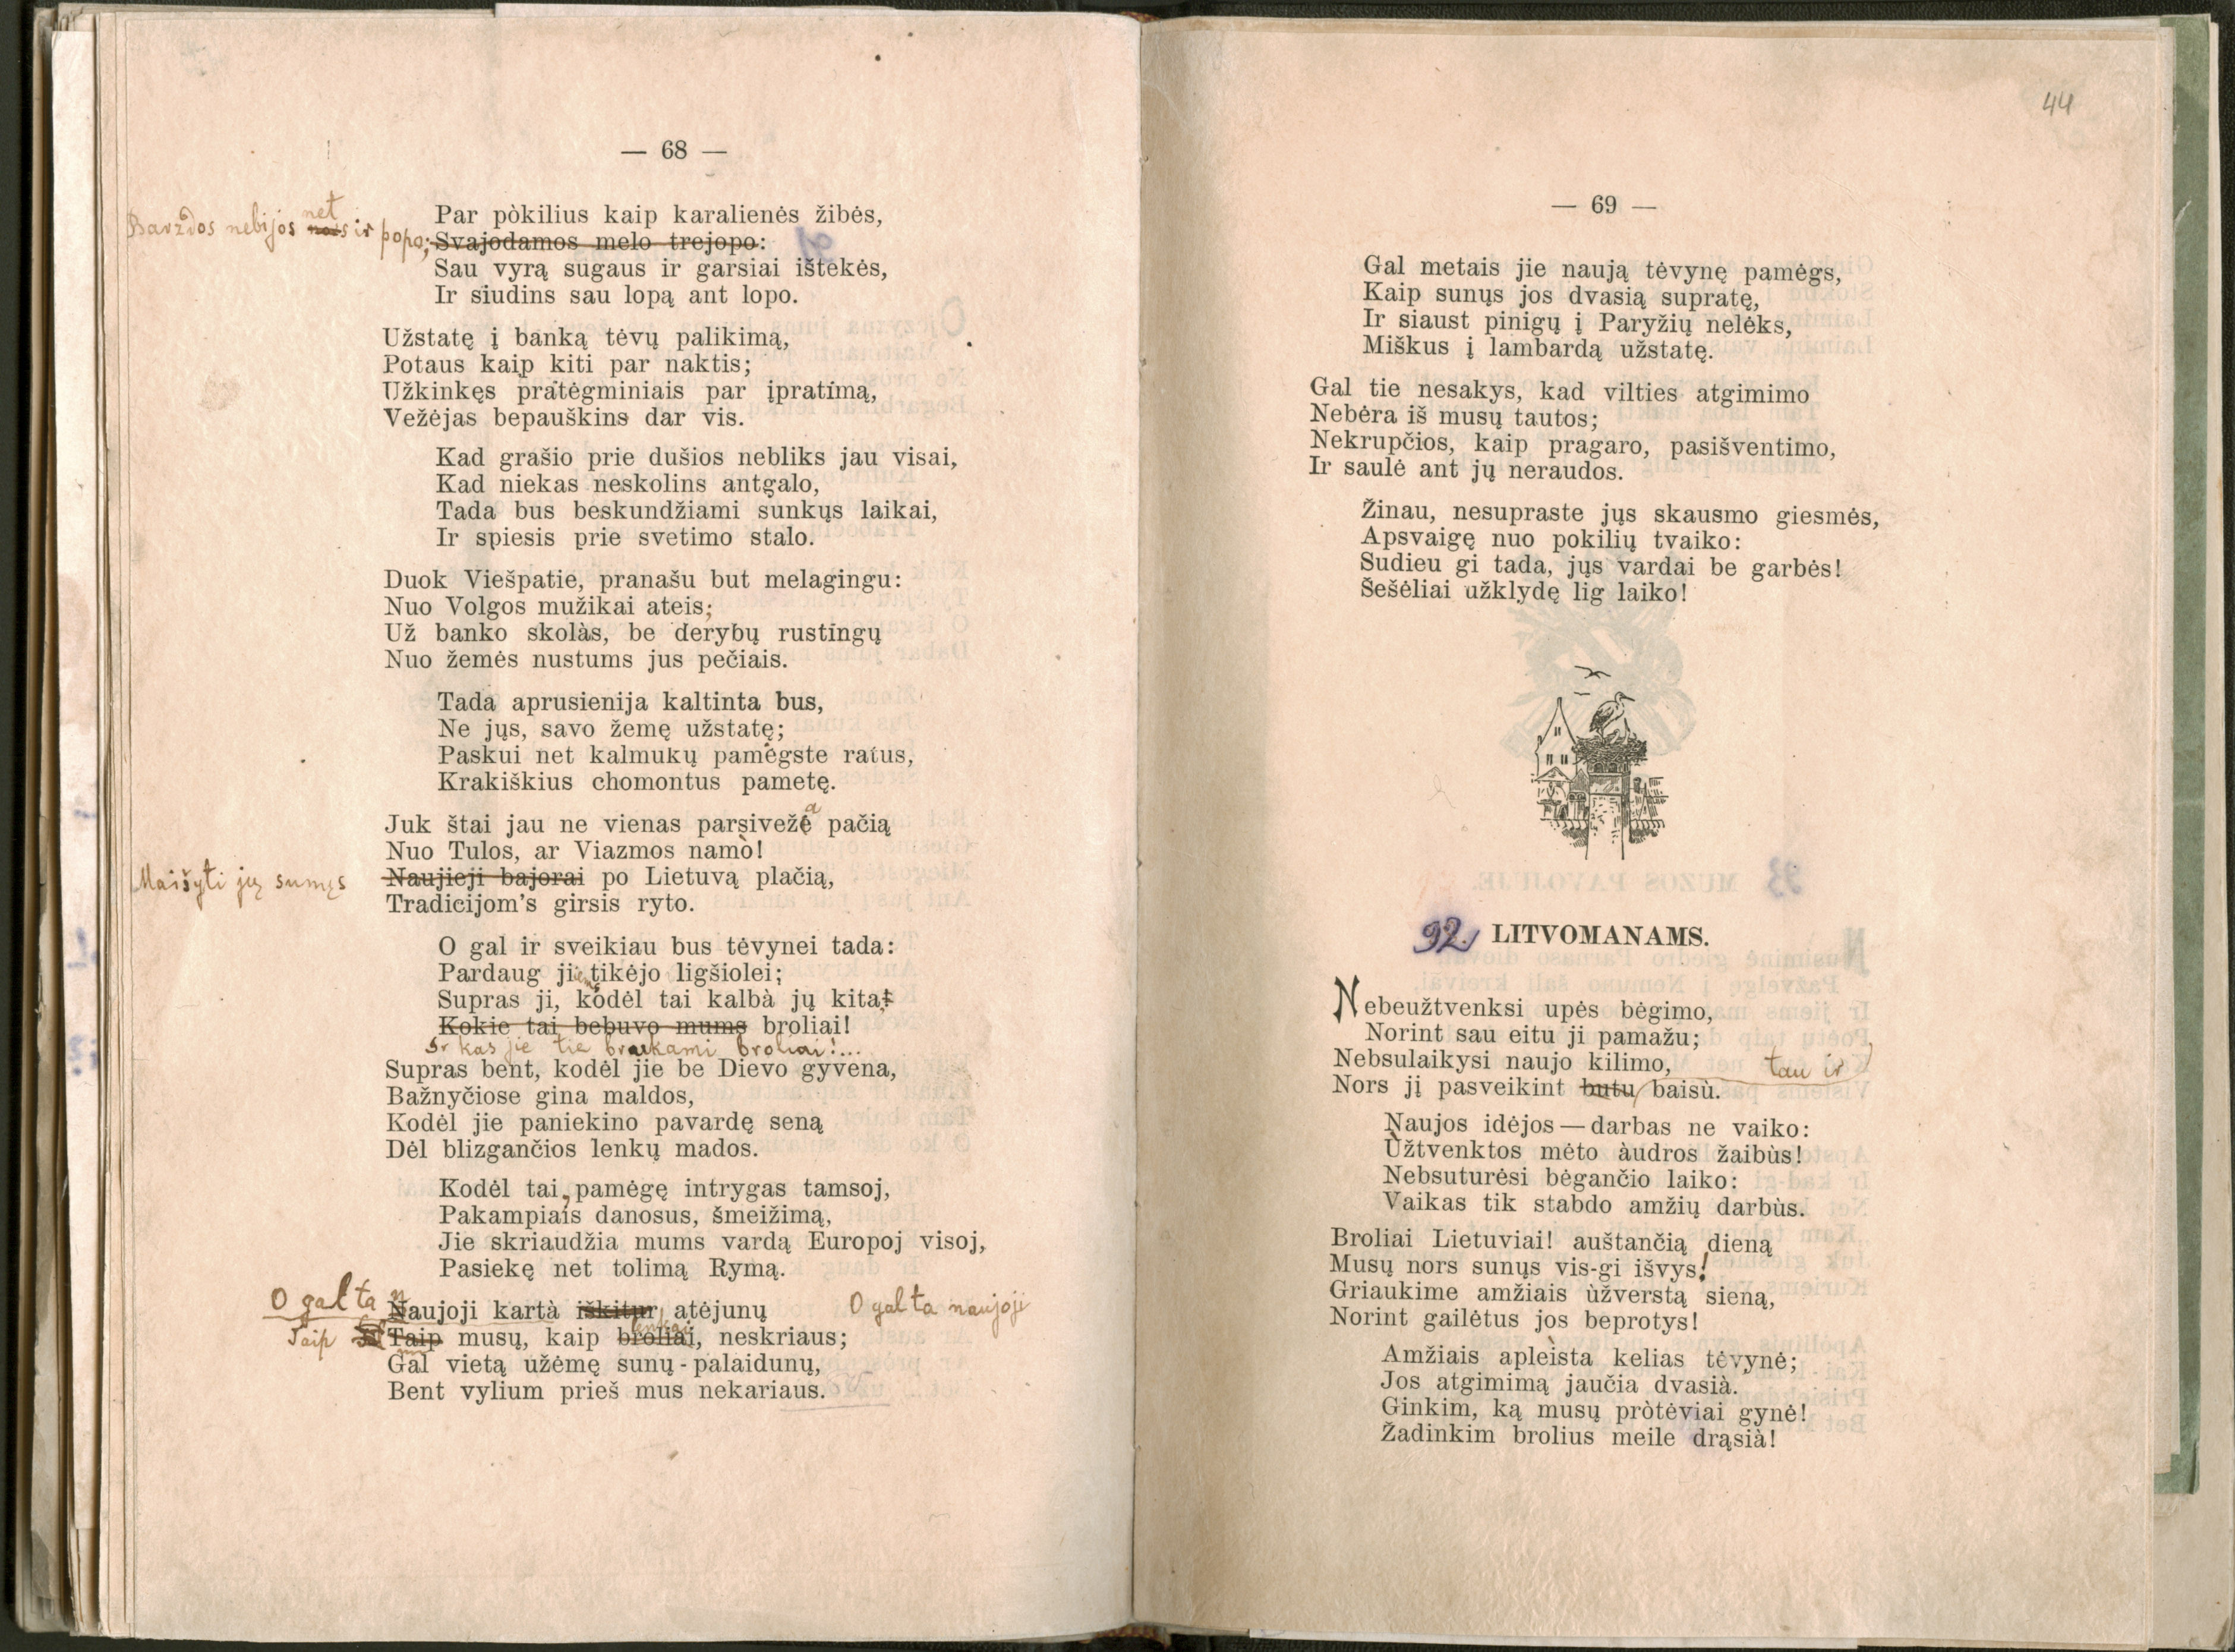 — 68 —
Par pòkilius kaip karalienės žibės,
Barzdos nebijos net ir popo;
Svajodamos melo trejopo:
Sau vyrą sugaus ir garsiai ištekės,
Ir siudins sau lopą ant lopo.
Užstatę į banką tėvų palikimą,
Potaus kaip kiti par naktis;
Užkinkęs pratėgminiais par įpratimą,
Vežėjas bepauškins dar vis.
Kad grašio prie dušios nebliks jau visai,
Kad niekas neskolins antgalo,
Tada bus beskundžiami sunkųs laikai,
Ir spiesis prie svetimo stalo.
Duok Viešpatie, pranašu but melagingu:
Nuo Volgos mužikai ateis;
Už banko skolàs, be derybų rustingų
Nuo žemės nustums jus pečiais.
Tada aprusienija kaltinta bus,
Ne jųs, savo žemę užstatę;
Paskui net kalmukų pamėgste ratus,
Krakiškius chomontus pametę.
Juk štai jau ne vienas parsivežė pačią
a
Nuo Tulos, ar Viazmos namò!
Maišyti jų sumįs
Naujieji bajorai po Lietuvą plačią,
Tradicijom's girsis ryto.
O gal ir sveikiau bus tėvynei tada:
Pardaug ji tikėjo ligšiolei;
Supras ji, kodėl tai kalbà jų kita,
Kokie tai bebuvo mums broliai!
Ir kas jie tie braukami broliai!...
Supras bent, kodėl jie be Dievo gyvena,
Bažnyčiose gina maldos,
Kodėl jie paniekino pavardę seną
Dėl blizgančios lenkų mados.
Kodėl tai, pamėgę intrygas tamsoj,
Pakampiais danosus, šmeižimą,
Jie skriaudžia mums vardą Europoj visoj,
Pasiekę net tolimą Rymą.
O gal ta n
Naujoji kartà iškitur, atėjunų
O gal ta naujoji
Taip
Taip musų, kaip broliai, neskriaus;
Gal vietą užėmę sunų-palaidunų,
Bent vylium prieš mus nekariaus.
44
— 69 —
Gal metais jie naują tėvynę pamėgs,
Kaip sunųs jos dvasią supratę,
Ir siaust pinigų į Paryžių nelėks,
Miškus į lambardą užstatę.
Gal tie nesakys, kad vilties atgimimo
Nebėra iš musų tautos;
Nekrupčios, kaip pragaro, pasišventimo,
Ir saulė ant jų neraudos.
Žinau, nesupraste jųs skausmo giesmės,
Apsvaigę nuo pokilių tvaiko:
Sudieu gi tada, jųs vardai be garbės!
Šešėliai užklydę lig laiko!
92. LITVOMANAMS.
Nebeužtvenksi upės bėgimo,
Norint sau eitu ji pamažu;
Nebsulaikysi naujo kilimo,
tau ir
Nors jį pasveikint butu baisù.
Naujos idėjos — darbas ne vaiko:
Ùžtvenktos mėto àudros žaibùs!
Nebsuturėsi bėgančio laiko:
Vaikas tik stabdo amžių darbùs.
Broliai Lietuviai! auštančią dieną
Musų nors sunųs vis-gi išvys!
Griaukime amžiais ùžverstą sieną,
Norint gailėtus jos beprotys!
Amžiais apleista kelias tėvynė;
Jos atgimimą jaučia dvasià.
Ginkim, ką musų pròtėviai gynė!
Žadinkim brolius meile drąsià!